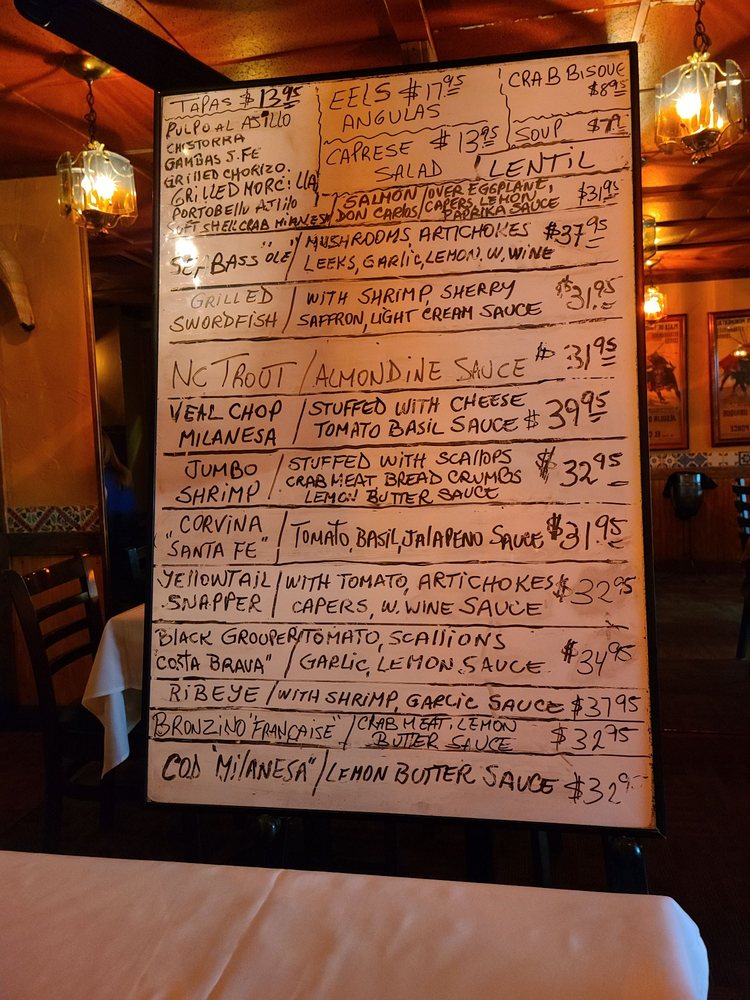 TAPAS $13.95
PULPO AL AJILLO
CHISTORRA
GAMBAS S. FE
GRILLED CHORIZO
GRILLED MORCILLA
PORTOBELLO AJILLO
SOFT SHELL CRAB MILANESA
EELS $17.95
ANGULAS
CAPRESE $13.95
SALAD
CRAB BISQUE
$8.95
SOUP
LENTIL
SALMON / OVER EGGPLANT,
DON CARLOS / CAPERS, LEMON, $31.95
PAPRIKA SAUCE
SEA BASS "OLE" / MUSHROOMS ARTICHOKES $37.95
LEEKS, GARLIC, LEMON, W. WINE
GRILLED / WITH SHRIMP, SHERRY $31.95
SWORDFISH / SAFFRON, LIGHT CREAM SAUCE
NC TROUT / ALMONDINE SAUCE $31.95
VEAL CHOP / STUFFED WITH CHEESE $39.95
MILANESA / TOMATO BASIL SAUCE
JUMBO / STUFFED WITH SCALLOPS $32.95
SHRIMP / CRAB MEAT BREAD CRUMBS
LEMON BUTTER SAUCE
"CORVINA / TOMATO, BASIL, JALAPENO SAUCE $31.95
"SANTA FE"
YELLOWTAIL / WITH TOMATO, ARTICHOKES $32.95
SNAPPER / CAPERS, W. WINE SAUCE
BLACK GROUPER / TOMATO, SCALLIONS $34.95
COSTA BRAVA" / GARLIC, LEMON SAUCE
RIBEYE / WITH SHRIMP, GARLIC SAUCE $37.95
BRONZINO "FRANÇAISE" / CRAB MEAT, LEMON
BUTTER SAUCE $32.95
COD "MILANESA" / LEMON BUTTER SAUCE